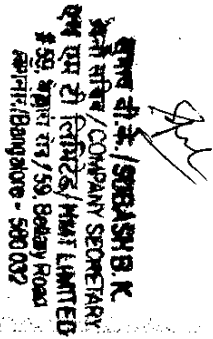 सुभाष बी.के. / SUBASH B. K.
कंपनी सचिव / COMPANY SECRETARY
एच एम टी लिमिटेड / HMT LIMITED
# 59, बेल्लारी रोड / 59, Bellary Road
बेंगलूर / Bangalore - 560 032